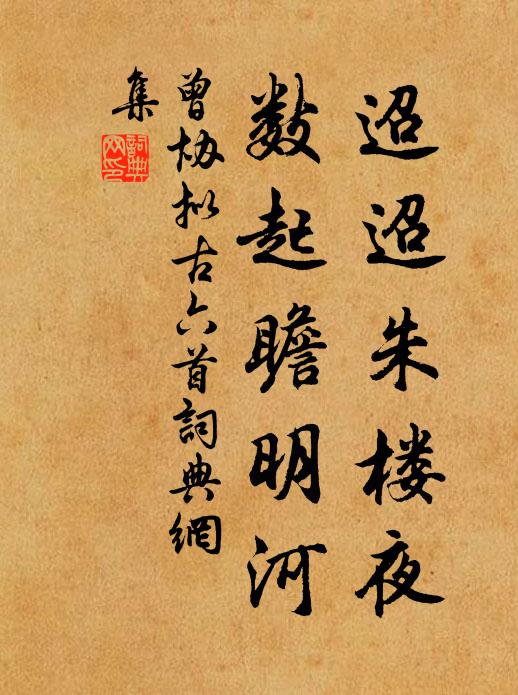 迢迢朱楼夜
数起瞻明河
曾协拟古六首詞典網
集
詞典
网印